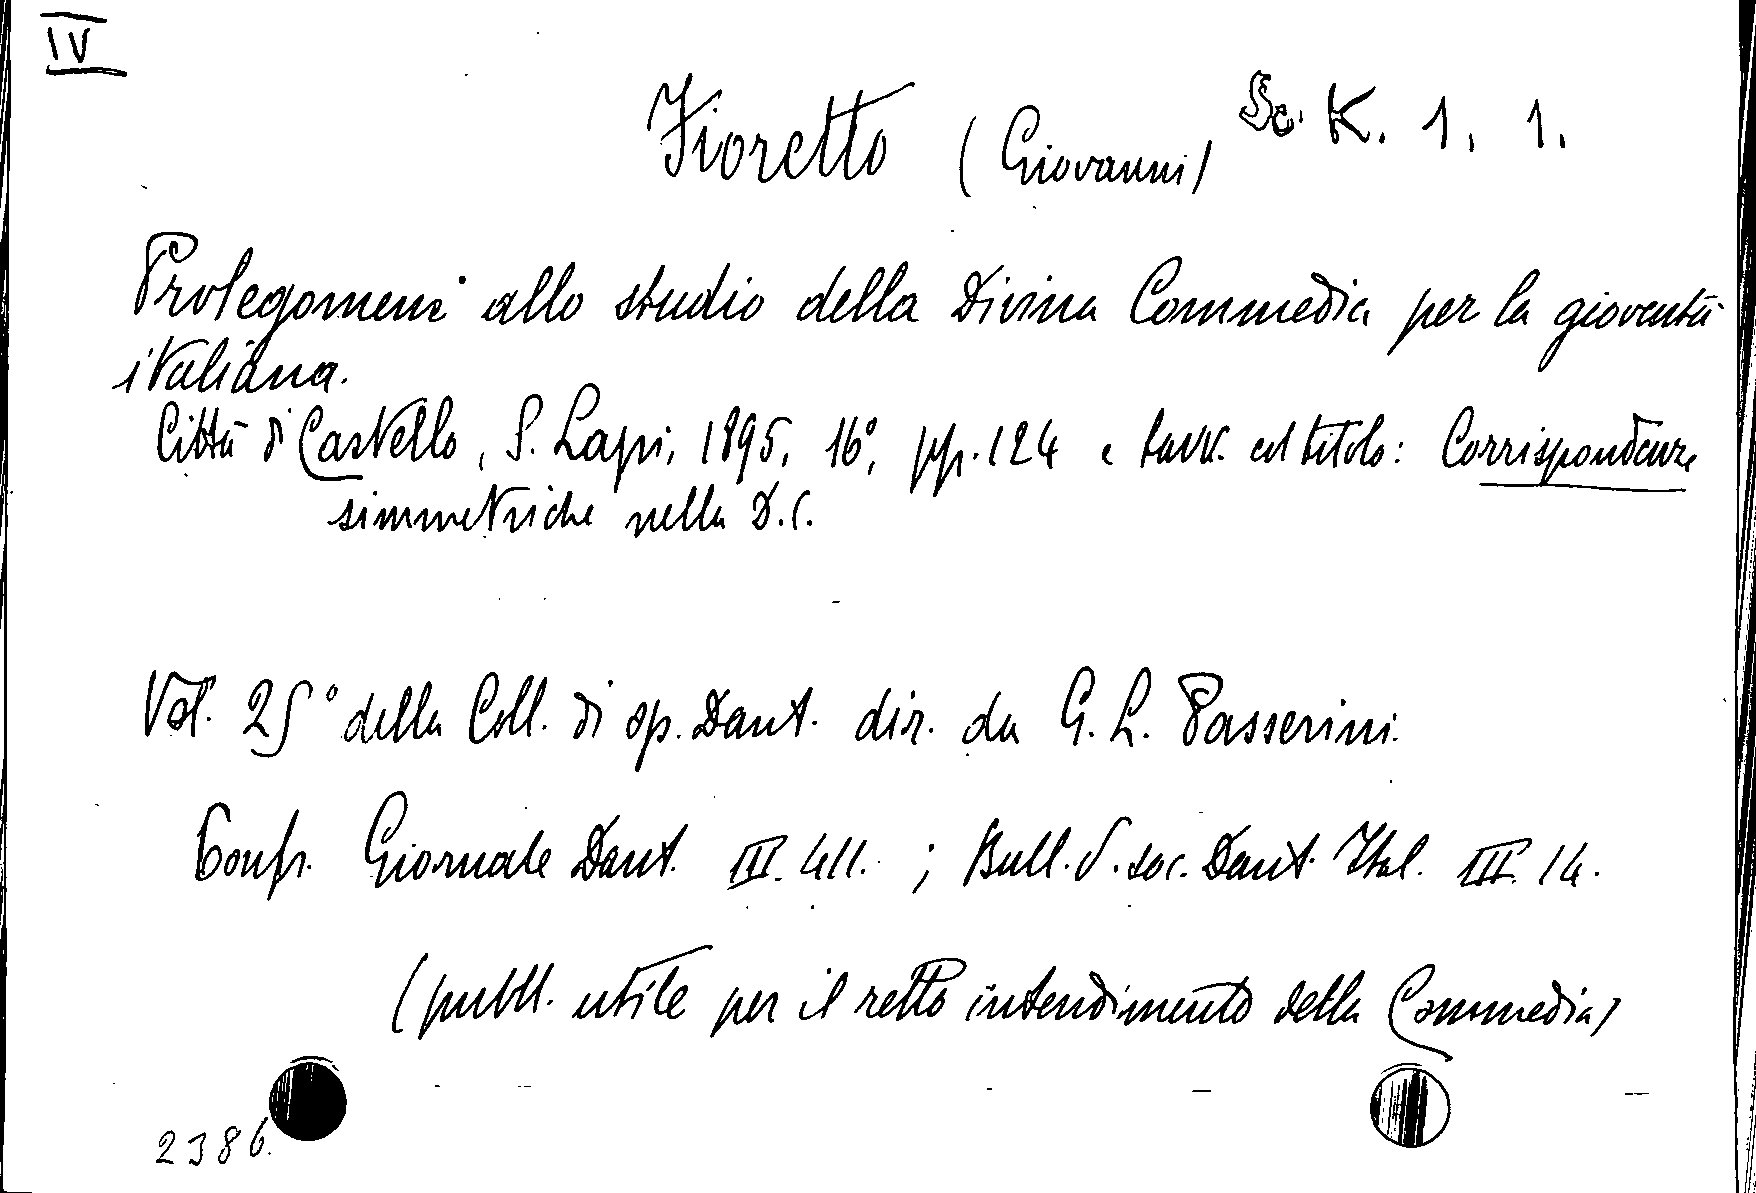 IV
Sc. K. 1. 1.
Fioretto (Giovanni)
Prolegomeni allo studio della Divina Commedia per la gioventù
italiana.
Città di Castello, S. Lapi, 1895, 16°, pp. 124 e tavv. col titolo: Corrispondenze
simmetriche nella D.C.
Vol. 25° della Coll. di op. Dant. dir. da G. L. Passerini.
Confr. Giornale Dant. III. 411. ; Bull. d. soc. Dant. Ital. III. 14.
(pubbl. utile per il retto intendimento della Commedia)
2386.